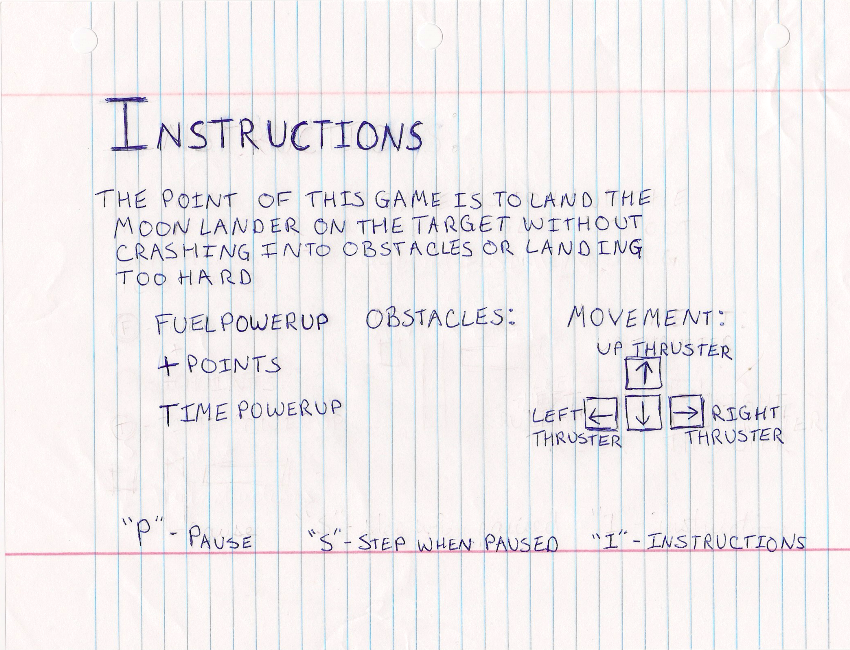 INSTRUCTIONS
THE POINT OF THIS GAME IS TO LAND THE
MOON LANDER ON THE TARGET WITHOUT
CRASHING INTO OBSTACLES OR LANDING
TOO HARD
FUEL POWERUP OBSTACLES: MOVEMENT:
UP THRUSTER
+ POINTS
↑
TIME POWERUP
LEFT ← ↓ → RIGHT
THRUSTER THRUSTER
"P" - PAUSE "S" - STEP WHEN PAUSED "I" - INSTRUCTIONS